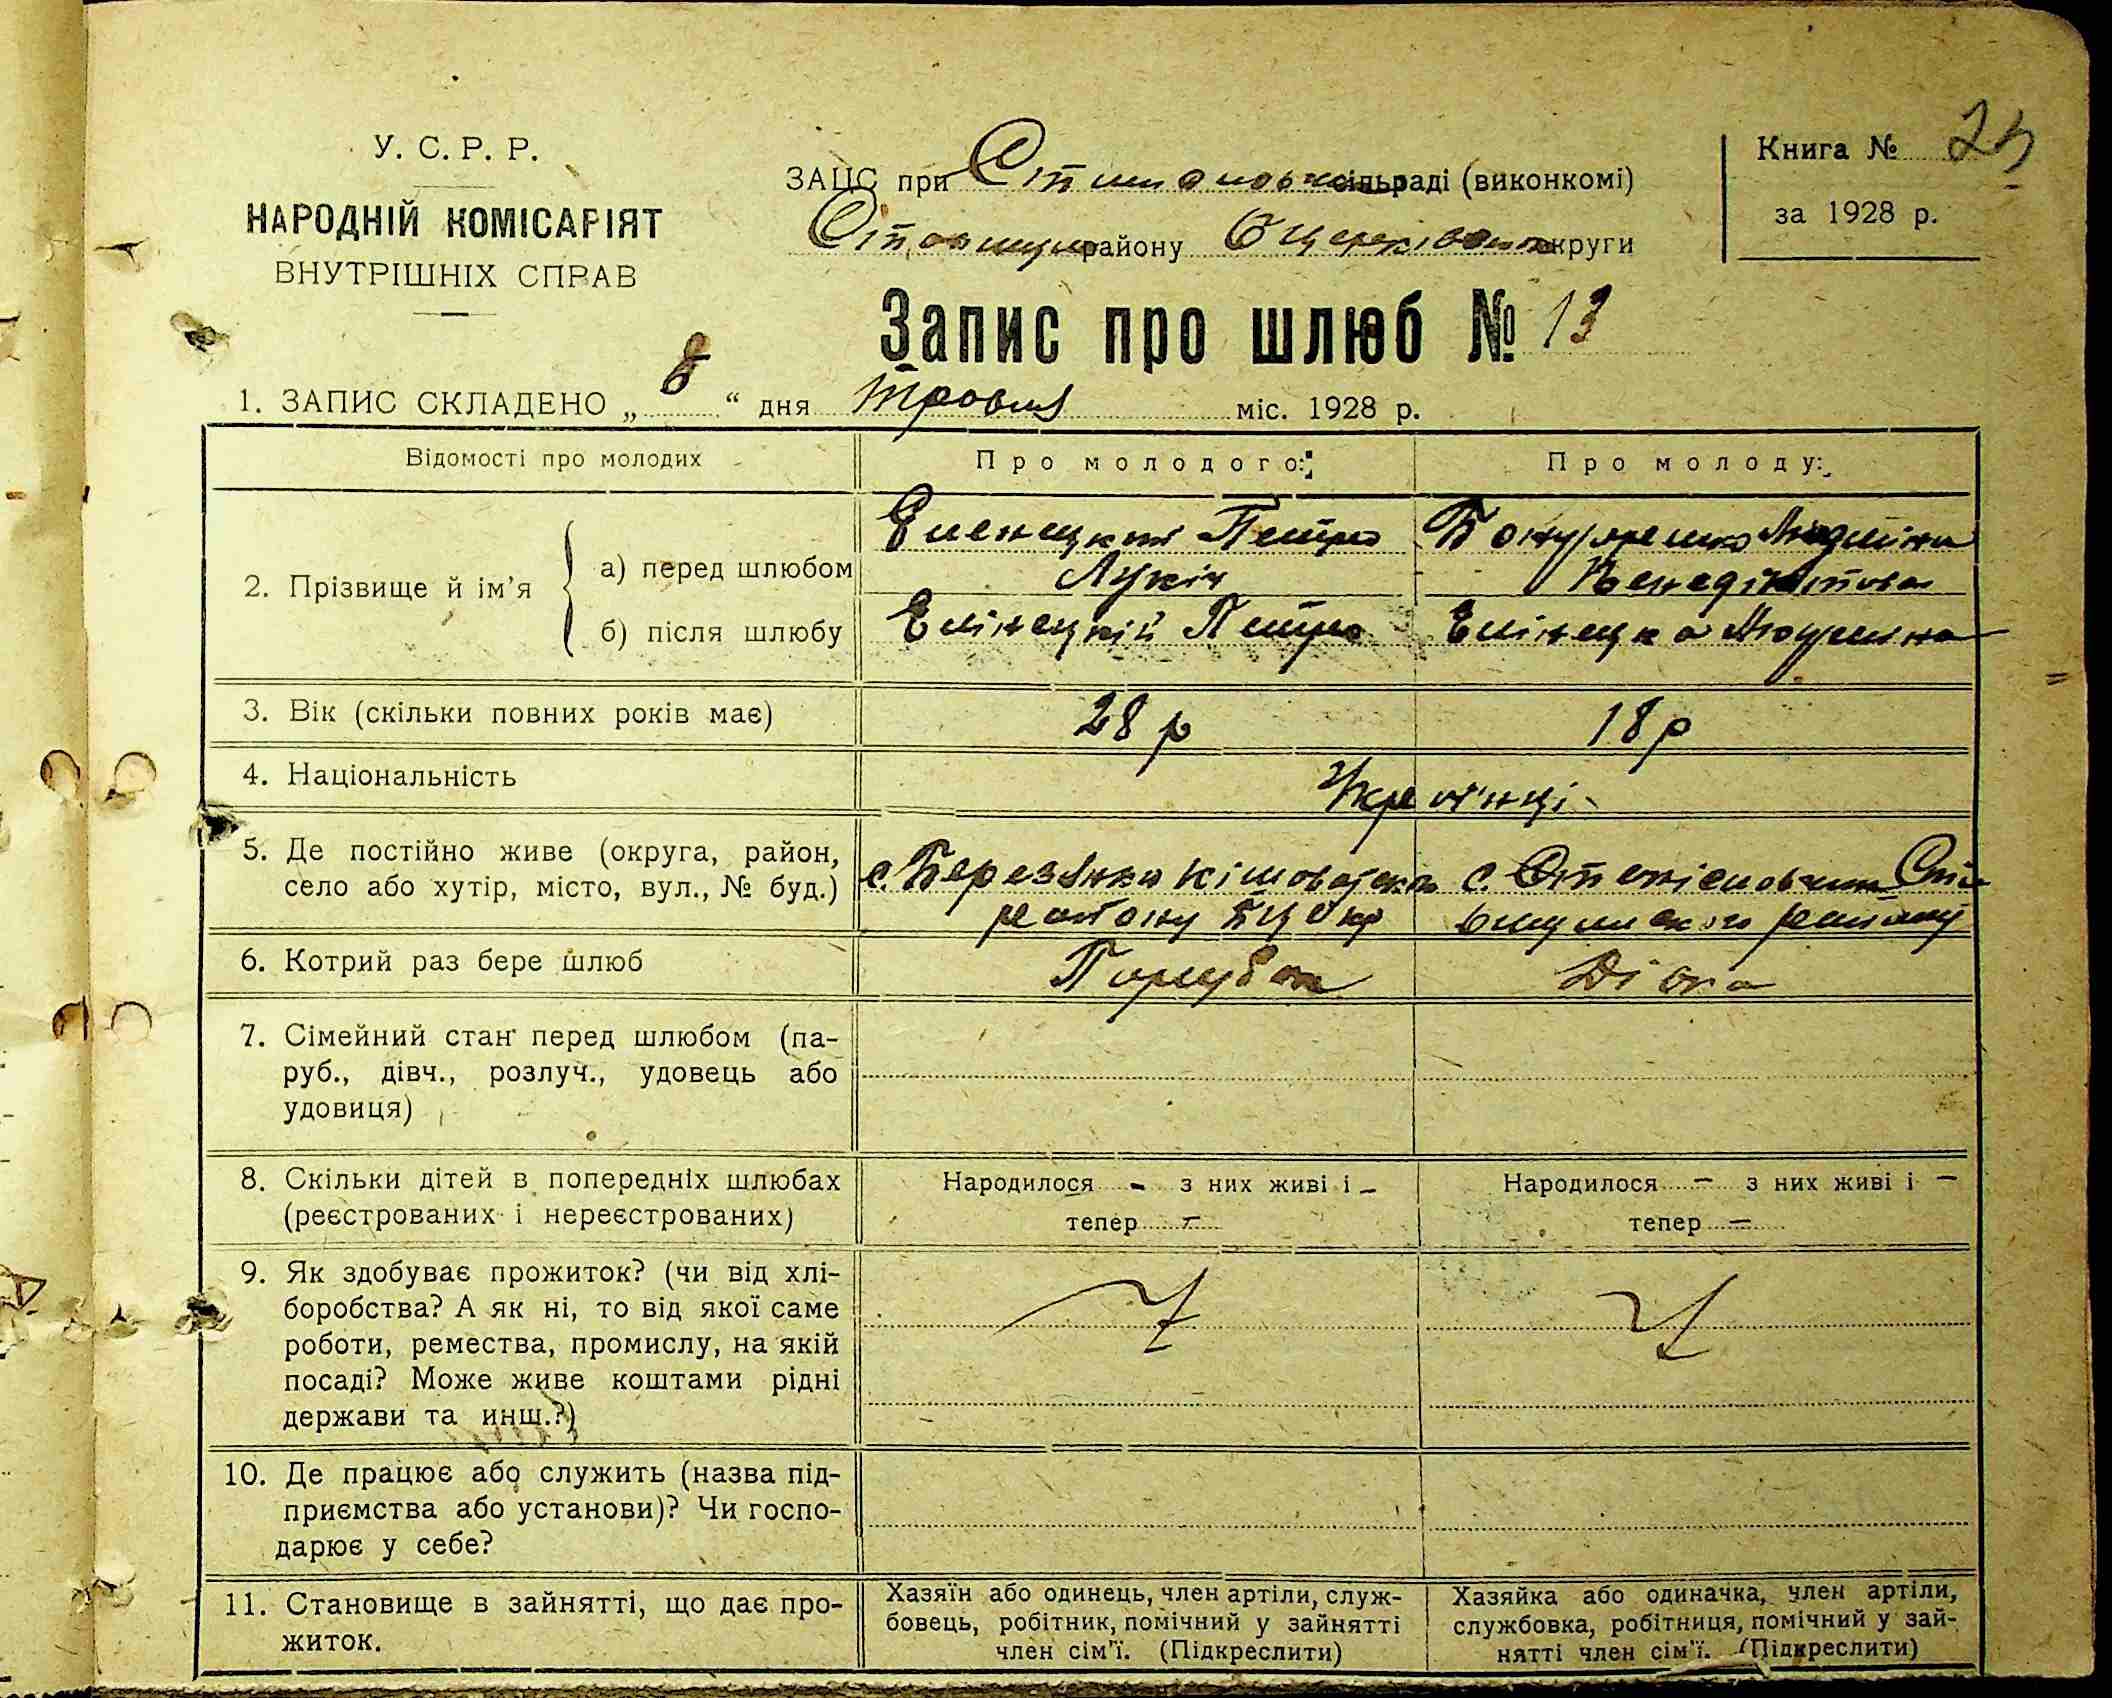 У. С. Р. Р.
НАРОДНІЙ КОМІСАРІЯТ
ВНУТРІШНІХ СПРАВ
ЗАЦС при сільраді (виконкомі)
району округи
Книга № 25
за 1928 р.
Запис про шлюб № 13
1. ЗАПИС СКЛАДЕНО „ 8 “ дня травня міс. 1928 р.
Відомості про молодих
Про молодого:
Про молоду:
2. Прізвище й ім’я
а) перед шлюбом
Петро
Лукіч
б) після шлюбу
Елінецкій Петро
Елінецка
3. Вік (скільки повних років має)
28 р
18 р
4. Національність
Україінці
5. Де постійно живе (округа, район,
село або хутір, місто, вул., № буд.)
с. Березянка
району БЦ Окр
с. району
6. Котрий раз бере шлюб
Парубок
Дівка
7. Сімейний стан перед шлюбом (па-
руб., дівч., розлуч., удовець або
удовиця)
8. Скільки дітей в попередніх шлюбах
(реєстрованих і нереєстрованих)
Народилося - з них живі і -
тепер -
Народилося - з них живі і -
тепер -
9. Як здобуває прожиток? (чи від хлі-
боробства? А як ні, то від якої саме
роботи, ремества, промислу, на якій
посаді? Може живе коштами рідні
держави та инш.?)
10. Де працює або служить (назва під-
приємства або установи)? Чи госпо-
дарює у себе?
11. Становище в зайнятті, що дає про-
житок.
Хазяїн або одинець, член артіли, служ-
бовець, робітник, помічний у зайнятті
член сім’ї. (Підкреслити)
Хазяйка або одиначка, член артіли,
службовка, робітниця, помічний у зай-
нятті член сім’ї. (Підкреслити)